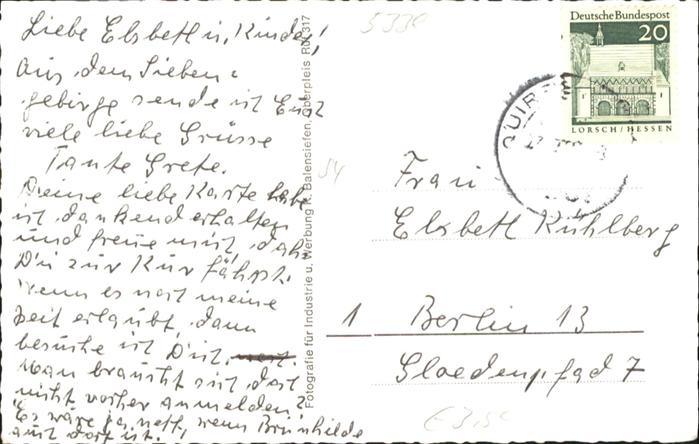 Liebe Elsbeth u. Kinder!
Aus dem Sieben=
gebirge sende ich Euch
viele liebe Grüsse
Tante Grete.
Deine liebe Karte habe
ich dankend erhalten
und freue mich, daß
Du zur Kur fährst.
Wenn es noch meine
Zeit erlaubt, dann
besuche ich Dich.
Man braucht sich dort
nicht vorher anmelden?
Es wäre ja nett, wenn Brünhilde
auch dort ist.
Fotografie für Industrie u. Werbung K. Balensiefen, Oberpleis
5330
54
Deutsche Bundespost
20
LORSCH/HESSEN
Frau
Elsbeth Kühlberg
1 Berlin 13
Gloedenpfad 7